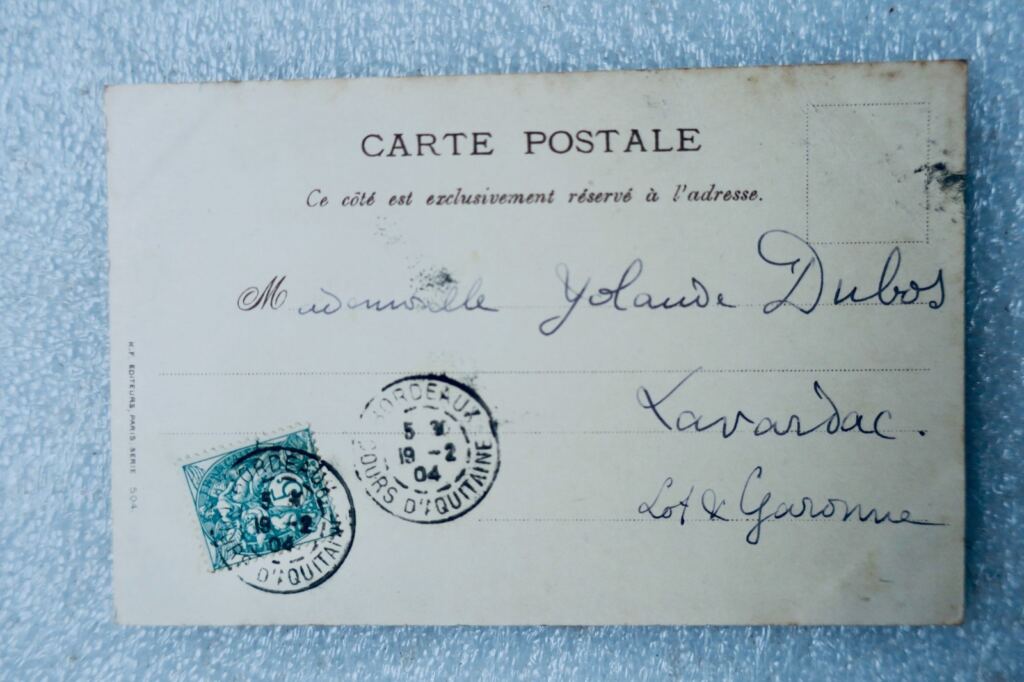 CARTE POSTALE
Ce côté est exclusivement réservé à l'adresse.
Mademoiselle Yolande Dubos
Lavardac.
Lot & Garonne
BORDEAUX
5 30
19 -2
04
COURS D'AQUITAINE
BORDEAUX
5
19 -2
04
D'AQUITAINE
5
K.F. EDITEURS, PARIS. SERIE 504